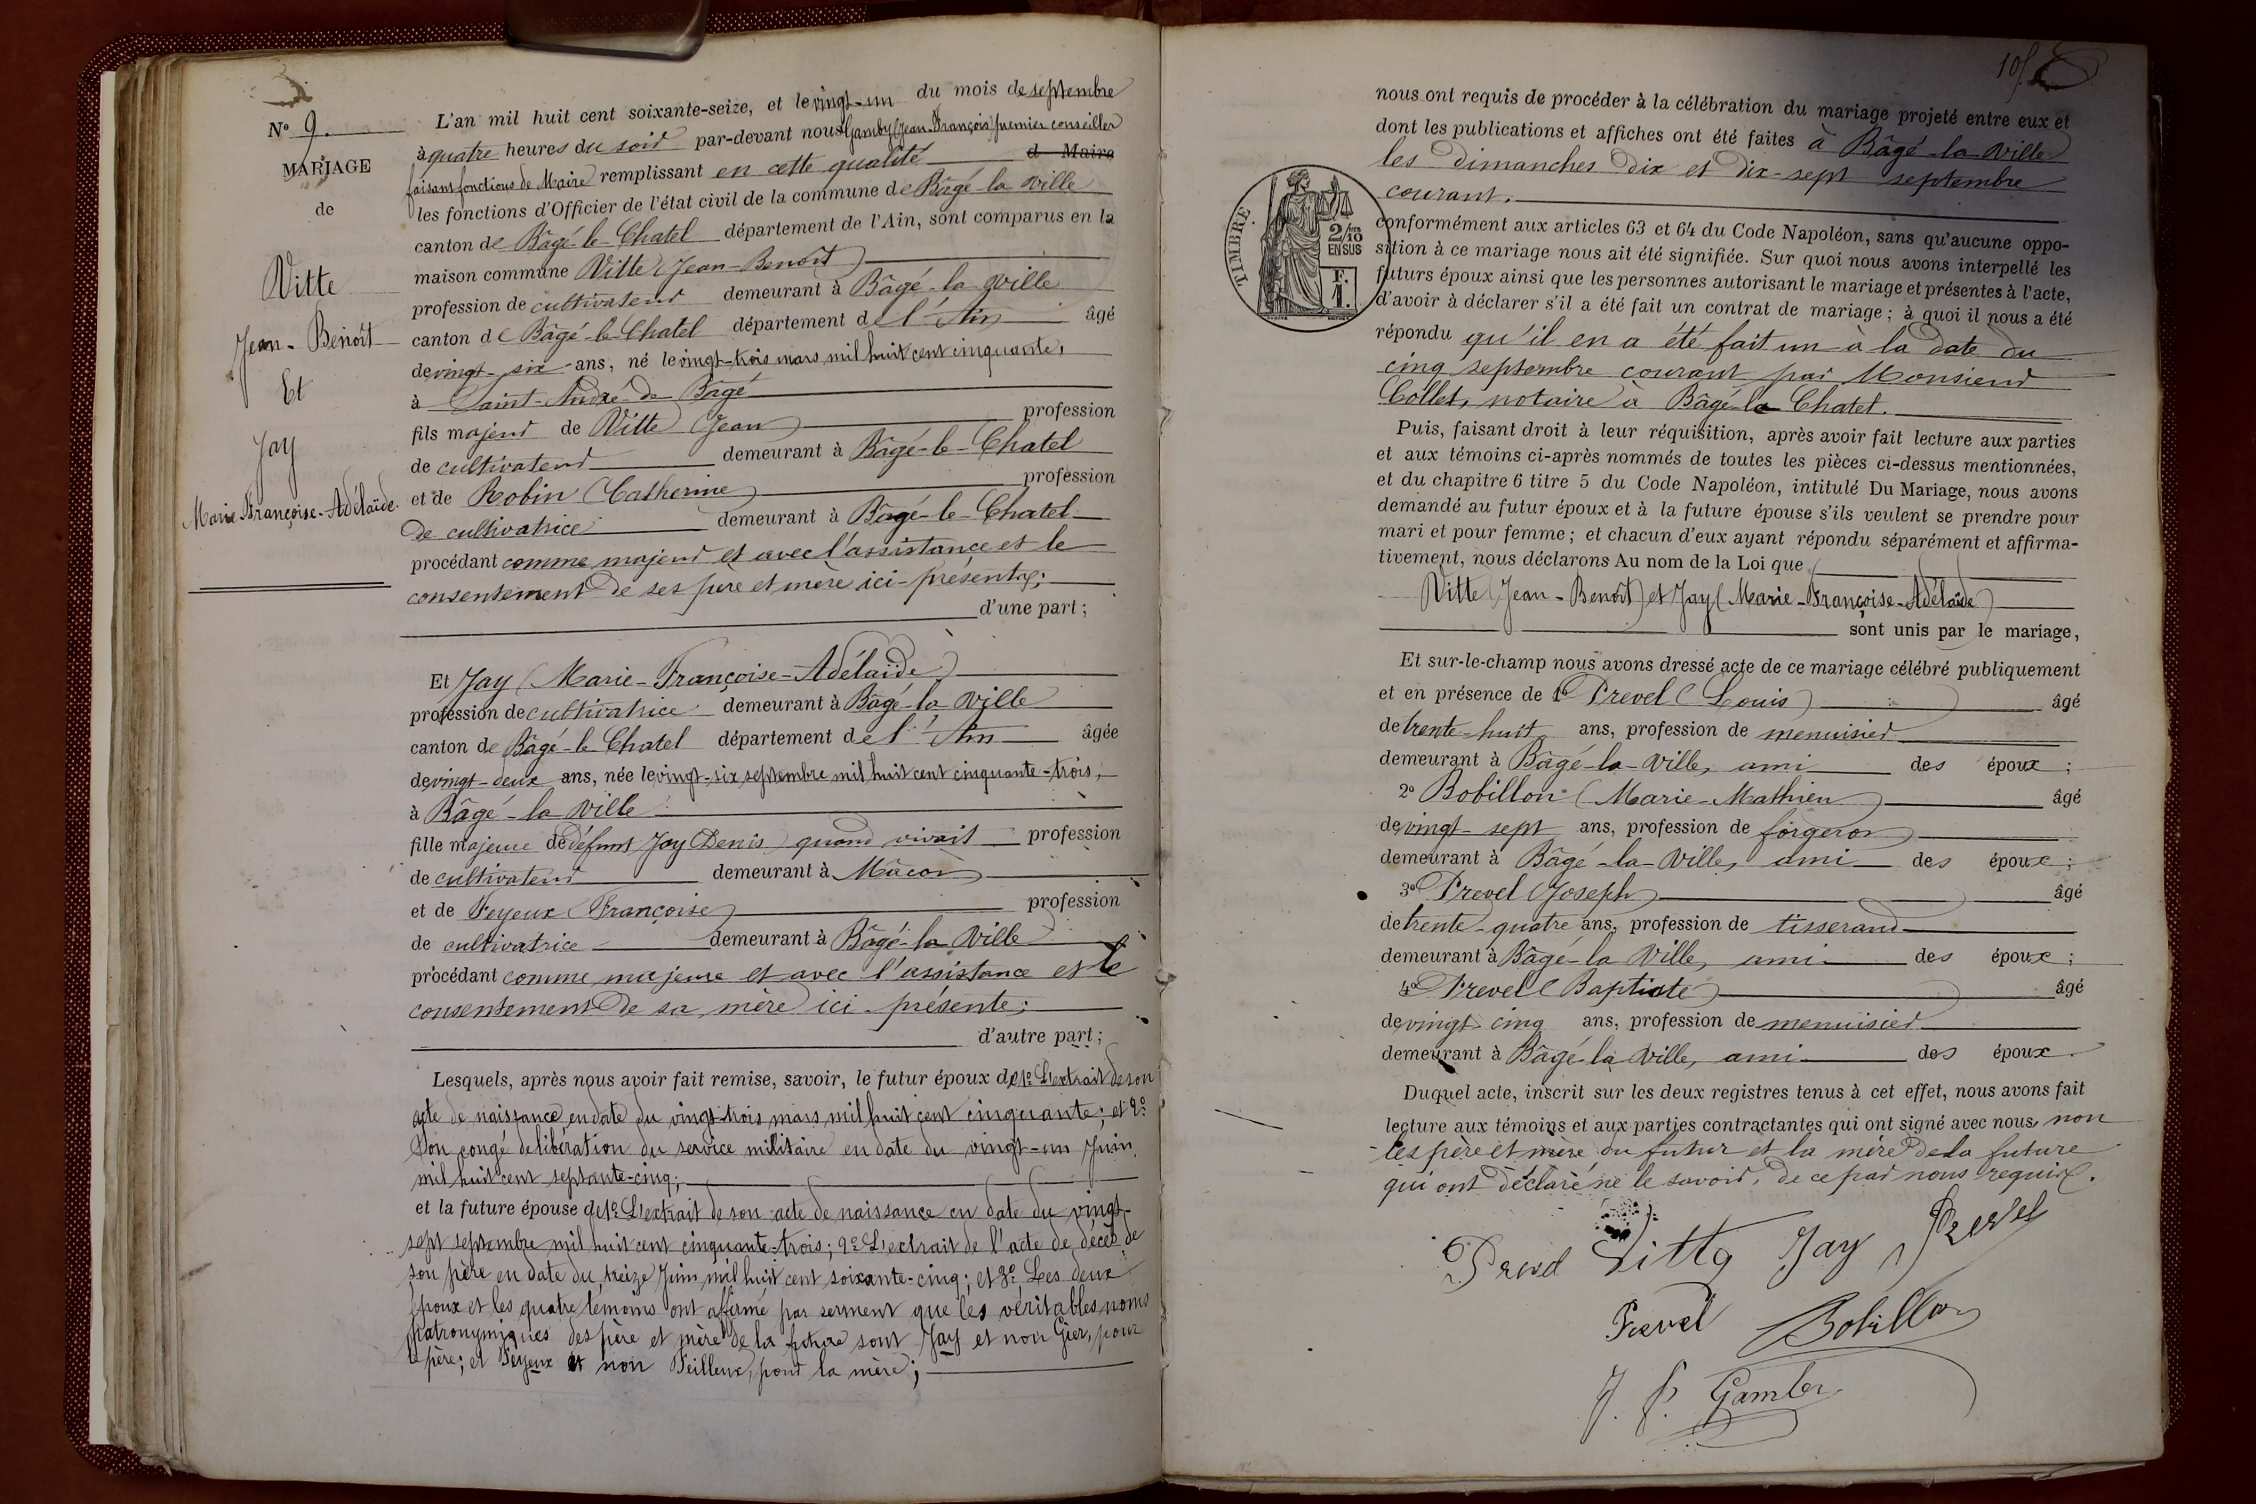 N° 9.
MARIAGE
de
Vitte
Jean-Benoît
Et
Jay
Marie-Françoise-Adélaïde.
L'an mil huit cent soixante-seize, et le vingt-un du mois de septembre
à quatre heures du soir par-devant nous Gamby (Jean-François) premier conseiller
faisant fonctions de Maire remplissant en cette qualité d Maire
les fonctions d'Officier de l'état civil de la commune de Bâgé-la-Ville
canton de Bâgé-le-Chatel département de l'Ain, sont comparus en la
maison commune Vitte (Jean-Benoît)
profession de cultivateur demeurant à Bâgé-la-Ville
canton de Bâgé-le-Chatel département de l'Ain âgé
de vingt-six ans, né le vingt-trois mars mil huit cent cinquante,
à Saint-André-de Bâgé
fils majeur de Vitte (Jean) profession
de cultivateur demeurant à Bâgé-le-Chatel
et de Robin (Catherine) profession
de cultivatrice demeurant à Bâgé-le-Chatel
procédant comme majeur et avec l'assistance et le
consentement de ses père et mère ici-présents;
d'une part;
Et Jay (Marie-Françoise-Adélaïde)
profession de cultivatrice demeurant à Bâgé-la-Ville
canton de Bâgé-le-Chatel département de l'Ain âgée
de vingt-deux ans, née le vingt-six septembre mil huit cent cinquante-trois,
à Bâgé-la-Ville
fille majeure de défunt Jay (Denis) quand vivait profession
de cultivateur demeurant à Mâcon
et de Feyeux (Françoise) profession
de cultivatrice demeurant à Bâgé-la-Ville
procédant comme majeure et avec l'assistance et le
consentement de sa mère ici présente;
d'autre part;
Lesquels, après nous avoir fait remise, savoir, le futur époux de 1° L'extrait de son
acte de naissance en date du vingt-trois mars mil huit cent cinquante; et 2°
Son congé de libération du service militaire en date du vingt-un Juin
mil huit cent septante-cinq;
et la future épouse de 1° L'extrait de son acte de naissance en date du vingt-
sept septembre mil huit cent cinquante-trois; 2° L'extrait de l'acte de décès de
son père en date du treize Juin mil huit cent soixante-cinq; et 3° Les deux
époux et les quatre témoins ont affirmé par serment que les véritables noms
patronymiques des père et mère de la future sont Jay et non Gier, pour
le père; et Feyeux et non Feilleux, pour la mère;
nous ont requis de procéder à la célébration du mariage projeté entre eux et
dont les publications et affiches ont été faites à Bâgé-la-Ville
les dimanches dix et dix-sept septembre
courant.
TIMBRE.
2/10
EN SUS
F.
1.
conformément aux articles 63 et 64 du Code Napoléon, sans qu'aucune oppo-
sition à ce mariage nous ait été signifiée. Sur quoi nous avons interpellé les
futurs époux ainsi que les personnes autorisant le mariage et présentes à l'acte,
d'avoir à déclarer s'il a été fait un contrat de mariage; à quoi il nous a été
répondu qu'il en a été fait un à la date du
cinq septembre courant par Monsieur
Collet, notaire à Bâgé-le Chatel.
Puis, faisant droit à leur réquisition, après avoir fait lecture aux parties
et aux témoins ci-après nommés de toutes les pièces ci-dessus mentionnées,
et du chapitre 6 titre 5 du Code Napoléon, intitulé Du Mariage, nous avons
demandé au futur époux et à la future épouse s'ils veulent se prendre pour
mari et pour femme; et chacun d'eux ayant répondu séparément et affirma-
tivement, nous déclarons Au nom de la Loi que
Vitte (Jean-Benoît) et Jay (Marie-Françoise-Adélaïde)
sont unis par le mariage,
Et sur-le-champ nous avons dressé acte de ce mariage célébré publiquement
et en présence de 1° Prevel (Louis) âgé
de trente-huit ans, profession de menuisier
demeurant à Bâgé-la-Ville, ami des époux;
2° Bobillon (Marie-Mathieu) âgé
de vingt-sept ans, profession de forgeron
demeurant à Bâgé-la-Ville, ami des époux;
3° Prevel (Joseph) âgé
de trente-quatre ans, profession de tisserand
demeurant à Bâgé-la Ville, ami des époux;
4° Prevel (Baptiste) âgé
de vingt cinq ans, profession de menuisier
demeurant à Bâgé-la Ville, ami des époux.
Duquel acte, inscrit sur les deux registres tenus à cet effet, nous avons fait
lecture aux témoins et aux parties contractantes qui ont signé avec nous, non
les père et mère du futur et la mère de la future
qui ont déclaré ne le savoir, de ce par nous requis.
Prevel Vitte Jay Prevel
Prevel Bobillon
J. F. Gamby